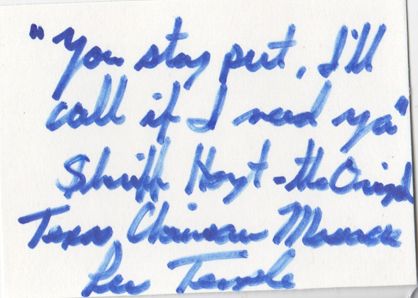 "You stay put, I'll
call if I need ya"
Sheriff Hoyt - the Original
Texas Chainsaw Massacre
Lew Temple